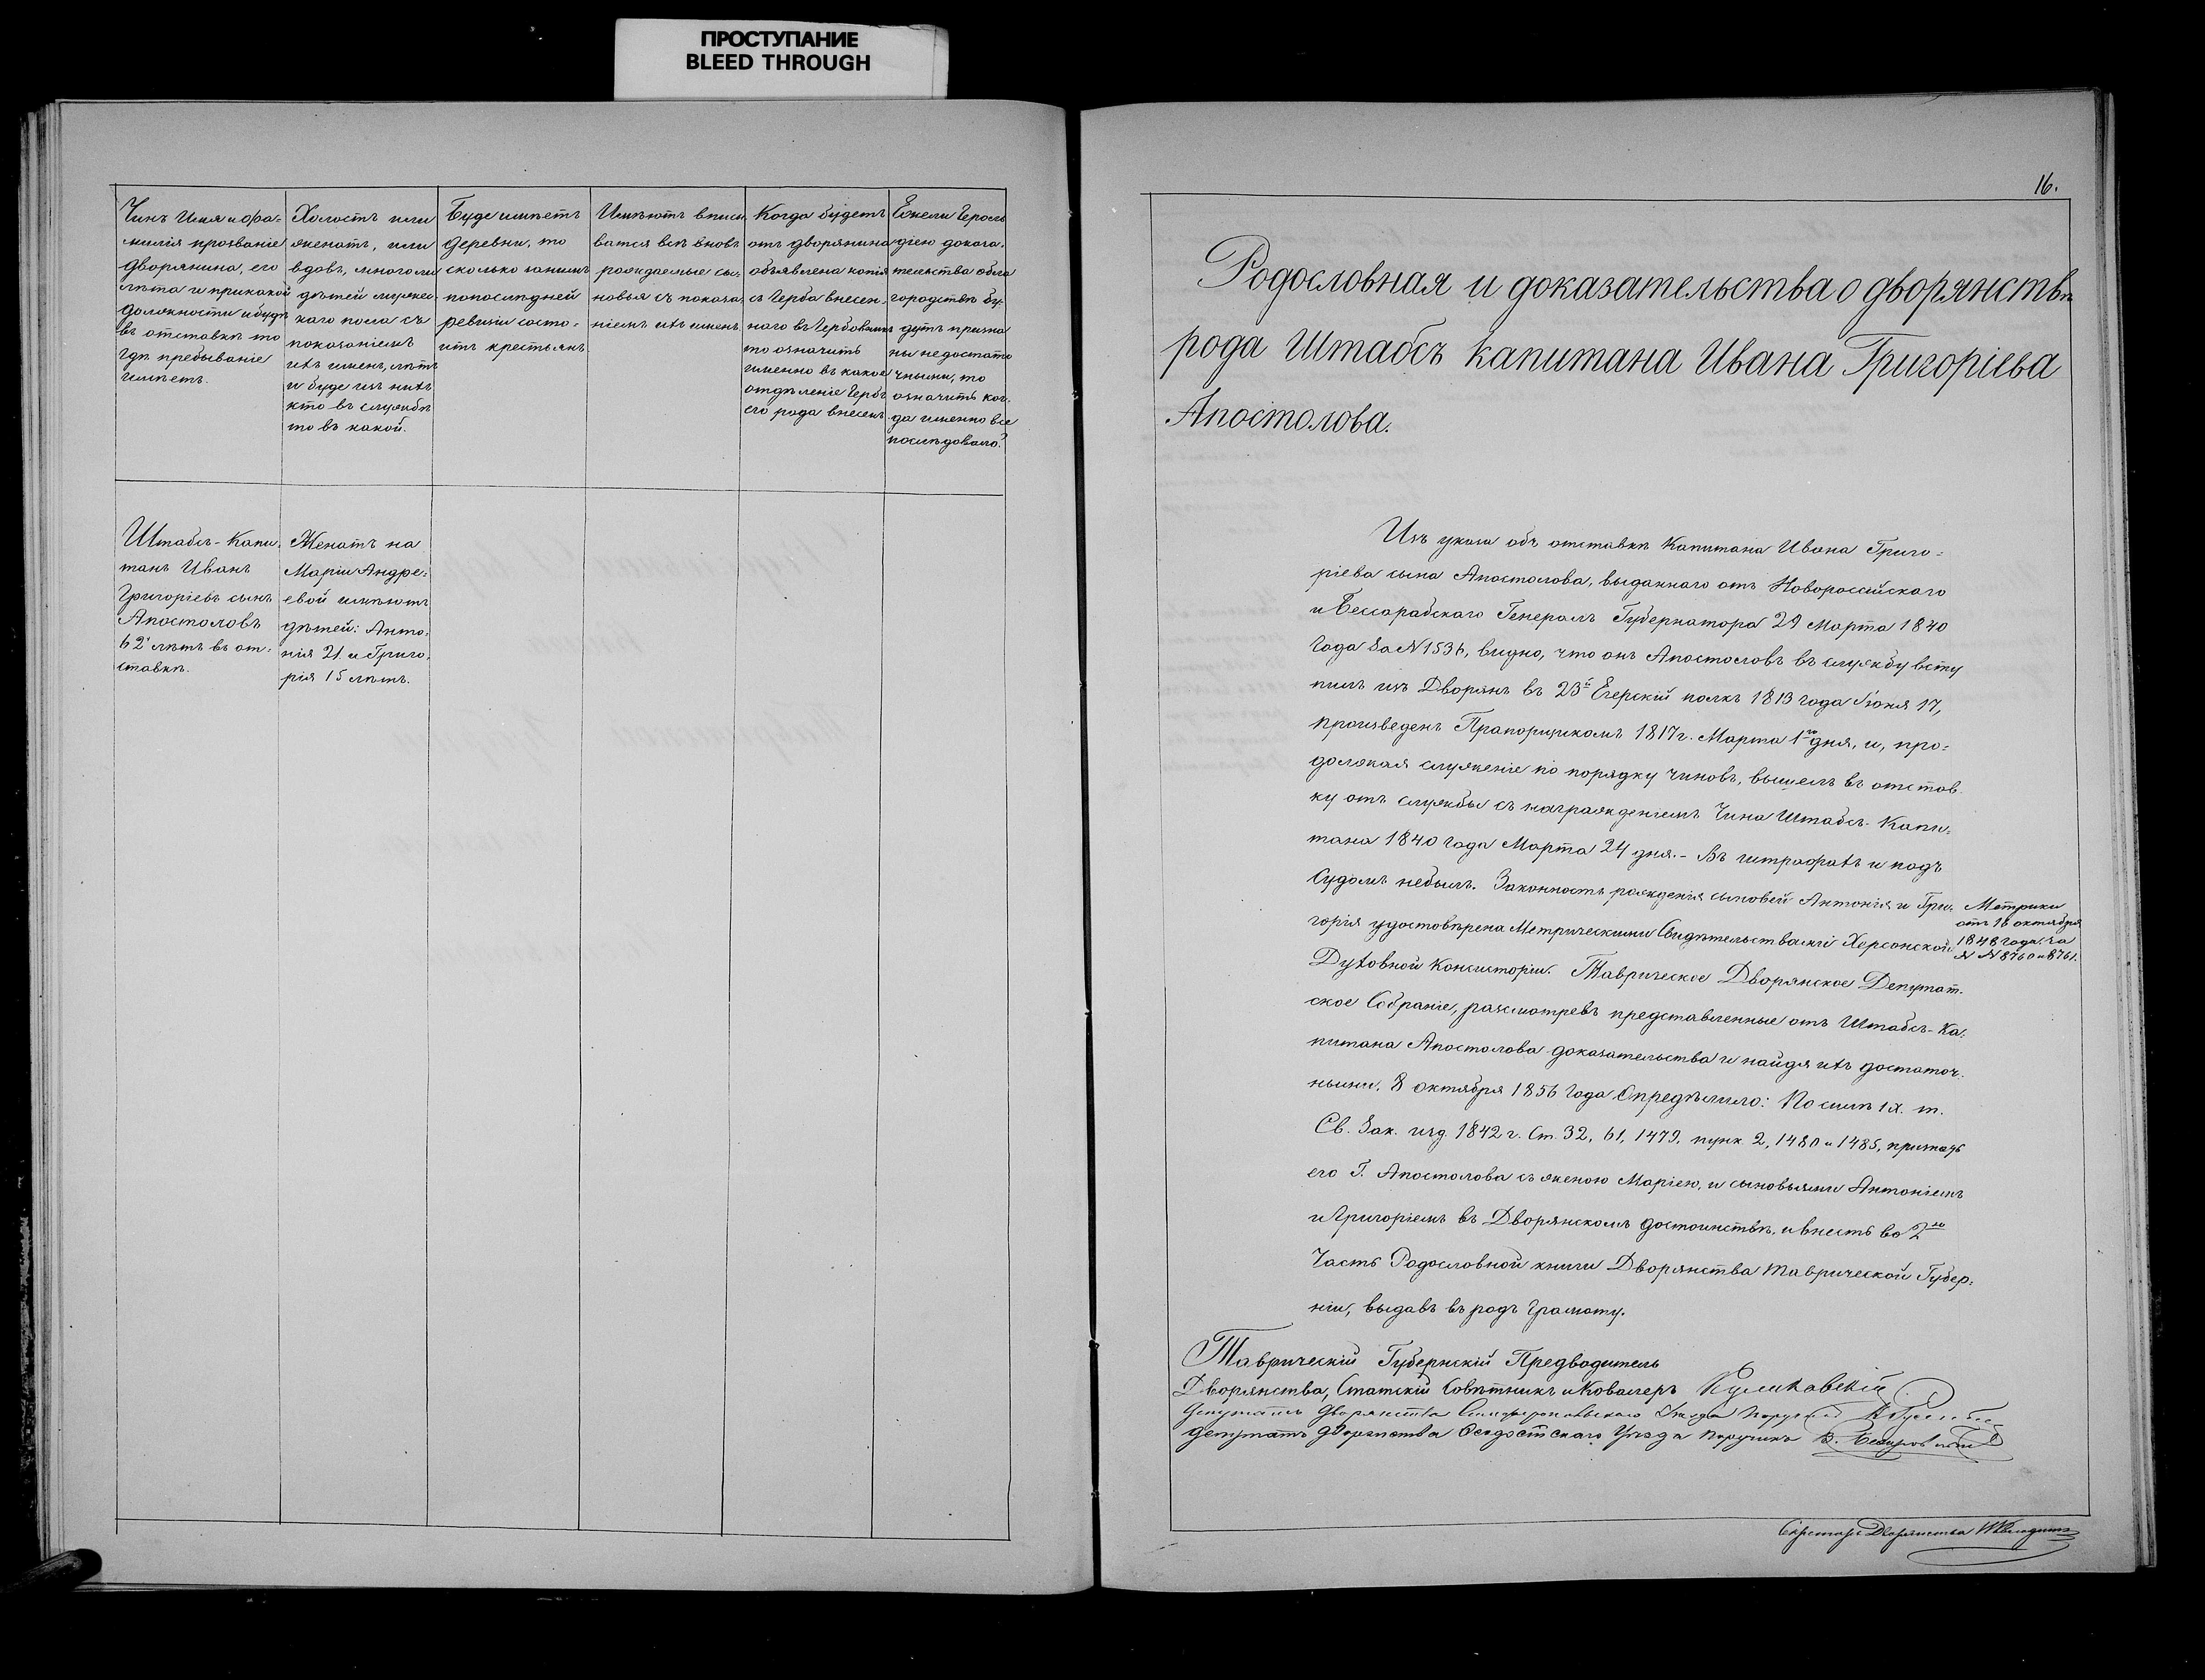 ПРОСТУПАНИЕ
BLEED THROUGH
Чинъ Имя и фа-
милія прозваніе
дворянина, его
лѣта и при какой
должности и буде
въ отставкѣ то
гдѣ пребываніе
имѣетъ.
Холостъ или
женатъ, или
вдовъ, много ли
дѣтей мужес-
каго пола съ
показаніемъ
ихъ именъ, лѣтъ
и буде изъ нихъ
кто въ службѣ
то въ какой.
Буде имѣетъ
деревни, то
сколько за нимъ
по послѣдней
ревизіи состо-
итъ крестьянъ.
Имѣютъ вписы
ватся всѣ вновь
рождаемые сы-
новья съ показа
ніемъ ихъ именъ.
Когда будетъ
отъ дворянина
объявлена копія
съ Герба внесен-
наго въ Гербовникъ
то означить
именно въ какое
отдѣленіе Гербъ
его рода внесенъ.
Ежели Героль
діею доказа-
тельства обла
городствѣ бу-
дутъ призна
ны недостато
чными, то
означить ког-
да именно все
послѣдовало?
Штабсъ-Капи-
танъ Иванъ
Григорьевъ сынъ
Апостоловъ
62 лѣтъ въ от-
ставкѣ.
Женатъ на
Маріи Андре-
евой имѣютъ
дѣтей: Анто-
нія 21 и Григо-
рія 15 лѣтъ.
16.
Родословная и доказательства о дворянствѣ
рода Штабсъ Капитана Ивана Григоріева
Апостолова.
Изъ указа объ отставкѣ Капитана Ивана Григо-
ріева сына Апостолова, выданнаго отъ Новороссійскаго
и Бессарабскаго Генералъ Губернатора 29 Марта 1840
года за N 1536, видно, что онъ Апостоловъ въ службу всту
пилъ изъ Дворянъ въ 23й Егерскій полкъ 1813 года Іюня 17,
произведенъ Прапорщикомъ 1817 г. Марта 1го дня, и, про-
должая служеніе по порядку чиновъ, вышелъ въ отстав-
ку отъ службы съ награжденіемъ Чина Штабсъ-Капи-
тана 1840 года Марта 24 дня. - Въ штрафахъ и подъ
судомъ небылъ. Законность рожденія сыновей Антонія и Гри-
горія удостовѣрена Метрическими Свидѣтельствами Херсонской
Духовной Консисторіи. Таврическое Дворянское Депутат-
ское Собраніе, разсмотревъ представленные отъ Штабсъ-Ка-
питана Апостолова доказательства и найдя ихъ достаточ-
ными, 8 октября 1856 года Опредѣлило: По силѣ IX. т.
Св. Зак. изд. 1842 г. Ст. 32, 61, 1479, пунк. 2, 1480 и 1485, признать
его Г. Апостолова съ женою Маріею, и сыновьями Антоніемъ
и Григоріемъ въ Дворянскомъ достоинствѣ, и внесть во 2ю
Часть Родословной книги Дворянства Таврической Губер-
ніи, выдавъ въ родъ Грамоту.
Метрики
отъ 18 октября
1848 года. за
N N 8760 и 8761.
Таврическій Губернскій Предводитель
Дворянства, Статскій Совѣтникъ и Кавалеръ Куликовскій
Депутатъ Дворянства Симферопольскаго Уѣзда Поручикъ
Депутатъ Дворянства Ѳеодосійскаго Уѣзда Поручикъ В.
Секретарь Дворянства